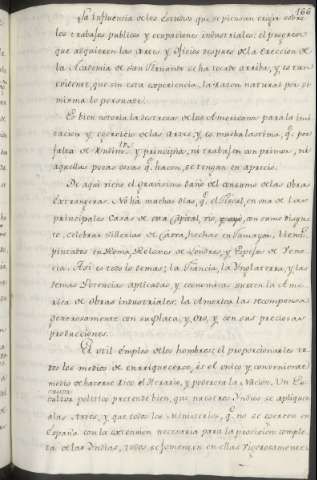 166
La Influencia de los Estudios que se piensan erigir sobre
los trabajos publicos y ocupaciones industriales: el progreso
que adquieren las Artes y Oficios despues de la Ereccion de
la Academia de San Fernando se ha tocado arriba, y es tan
evidente, que sin esta experiencia, la razon natural por si
misma lo persuade.
Es bien notoria la destreza de los Americanos para la imi-
tacion y exercicio de las Artes, y es mucha lastima, q.e por
falta de Modelos, y principios, ni trabajen con primor, ni
aquellas pocas cosas q.e hacen, se tengan en aprecio.
De aqui nació el gravisimo daño del consumo de las Obras
Extrangeras. No há muchos dias, q.e el Fiscal, en una de las
principales Casas de esta Capital, vió, con sumo disgus-
to, celebrar sillerias de Caxa, hechas en Lienzos
pintados en Roma, Reloxes de Londres, y Espejos de Vene-
cia. Asi es todo lo demas; la Francia, la Ynglaterra, y las
demas Potencias aplicadas, y economicas surten la Ame-
rica de Obras industriales: la America las recompensa
generosamente con su Plata, y Oro, y con sus preciosas
producciones.
El util empleo de los hombres; el proporcionarles to-
dos los medios de enriquecerse, es el unico y conveniente
medio de hacerse rico el Erario, y poderosa la Nacion. Un Es-
critor politico pretende bien, que nuestros Indios se apliquen
a las Artes, y que todos los Ministriles, q.e no se corren en
España con la extension necesaria para la provision comple-
ta de las Indias, todos se fomenten en ellas vigorosamente: